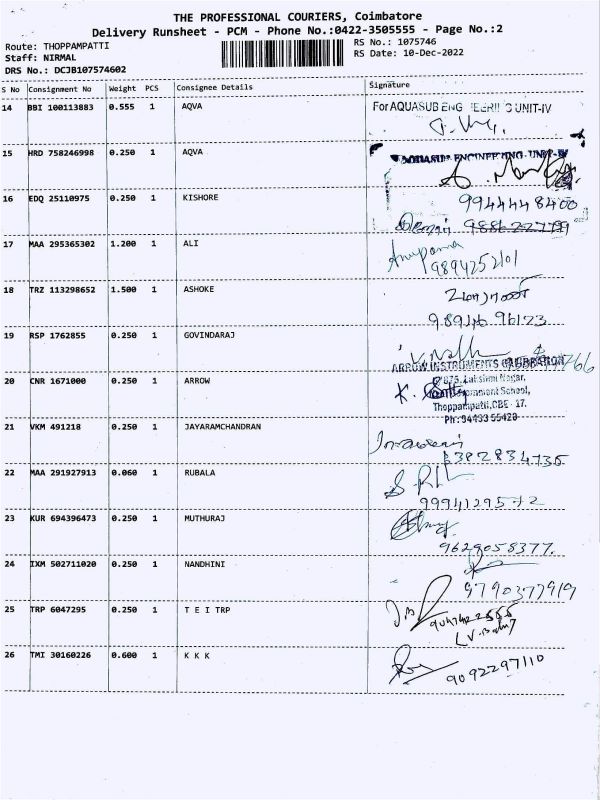 THE PROFESSIONAL COURIERS, Coimbatore
Delivery Runsheet - PCM - Phone No.:0422-3505555 - Page No.:2
Route: THOPPAMPATTI
RS No.: 1075746
Staff: NIRMAL
RS Date: 10-Dec-2022
DRS No.: DCJB107574602
S No Consignment No Weight PCS Consignee Details Signature
14 BBI 100113883 0.555 1 AQVA For AQUASUB ENG EERI G UNIT-IV
15 HRD 758246998 0.250 1 AQVA AQUASUB ENGINEERING UNIT-IV
16 EDQ 25110975 0.250 1 KISHORE 9944448400
17 MAA 295365302 1.200 1 ALI Anupama
9894252101
18 TRZ 113298652 1.500 1 ASHOKE
98946 96123
19 RSP 1762855 0.250 1 GOVINDARAJ
ARROW INSTRUMENTS CALIBRATION
20 CNR 1671000 0.250 1 ARROW Lakshmi Nagar,
School,
Thoppampatti, CBE - 17.
Ph: 94433 55420
21 VKM 491218 0.250 1 JAYARAMCHANDRAN
22 MAA 291927913 0.060 1 RUBALA
9994129572
23 KUR 694396473 0.250 1 MUTHURAJ
9629058377.
24 IXM 502711020 0.250 1 NANDHINI
9790377919
25 TRP 6047295 0.250 1 T E I TRP
26 TMI 30160226 0.600 1 K K K 9092297110